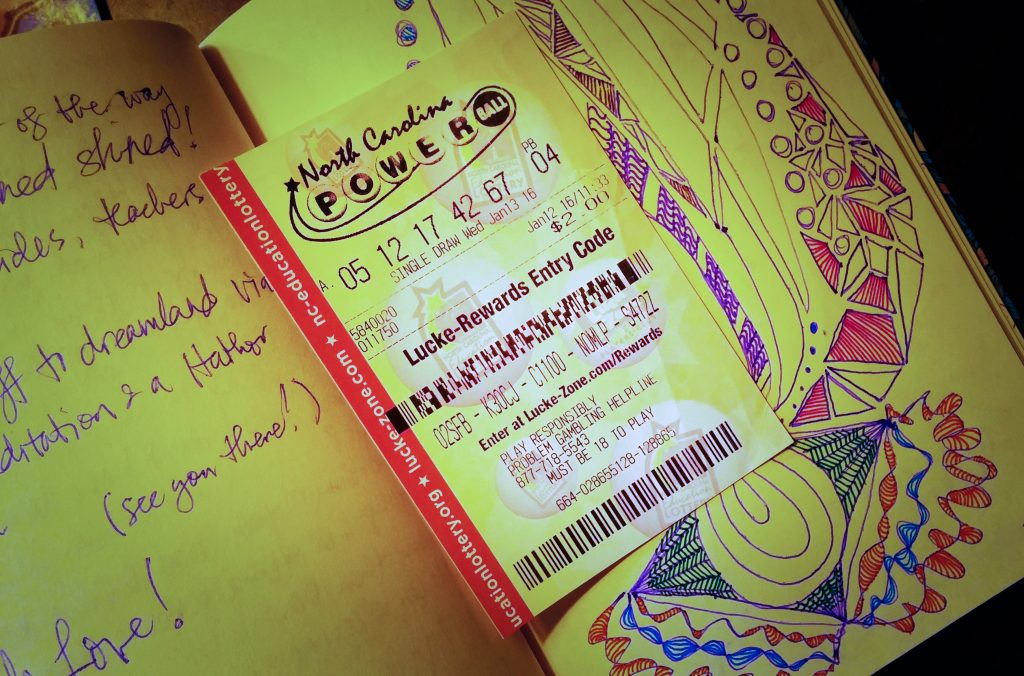 of the way
shined!
teachers
off to dreamland via
meditation & a Hathor
(see you there!)
Love!
nc-educationlottery
lucke-zone.com ★ lucke-zone.com ★ nc-educationlottery.org ★
North Carolina
POWERBALL
A. 05 12 17 42 67 PB 04
SINGLE DRAW Wed Jan13 16
Jan12 16/11:33
$2.00
5840020
011750
Lucke-Rewards Entry Code
02SFB - K30CJ - C1100 - NOMLP - S47ZZ
Enter at Lucke-Zone.com/Rewards
PLAY RESPONSIBLY
PROBLEM GAMBLING HELPLINE
877-718-5543
MUST BE 18 TO PLAY
664-028655128-128663